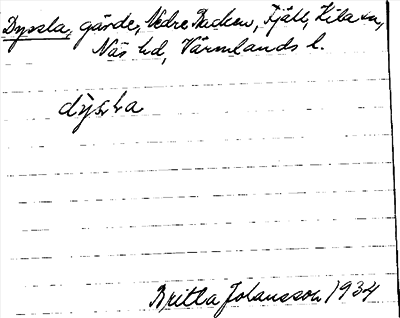 Dyssla, gärde, Nedre Backen, Fjäll, Kila sn,
Näs hd, Värmlands l.
dýsḷa
Britta Johansson 1934